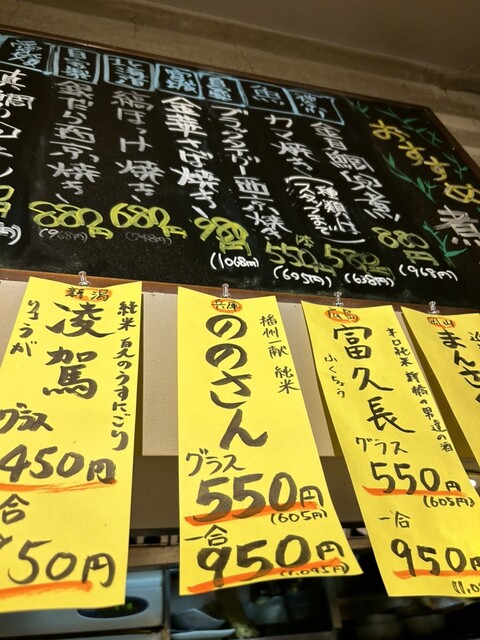 おすすめ
煮
金目鯛兜煮
880円
(968円)
魚
カマ焼き
(種類は
スタッフまで)
550円
(605円)
580円
(638円)
西京焼
980円
(1068円)
金華さば焼き
北海道
縞ほっけ焼き
680円
(748円)
銀だら西京焼き
880円
(968円)
岡山
まんさ
広島
辛口純米
富久長
ふくちょう
グラス
550円
(605円)
一合
950円
兵庫
播州一献 純米
ののさん
グラス
550円
(605円)
一合
950円
(1,045円)
新潟
純米 百えのうすにごり
凌駕
りょうが
グラス
450円
合
50円